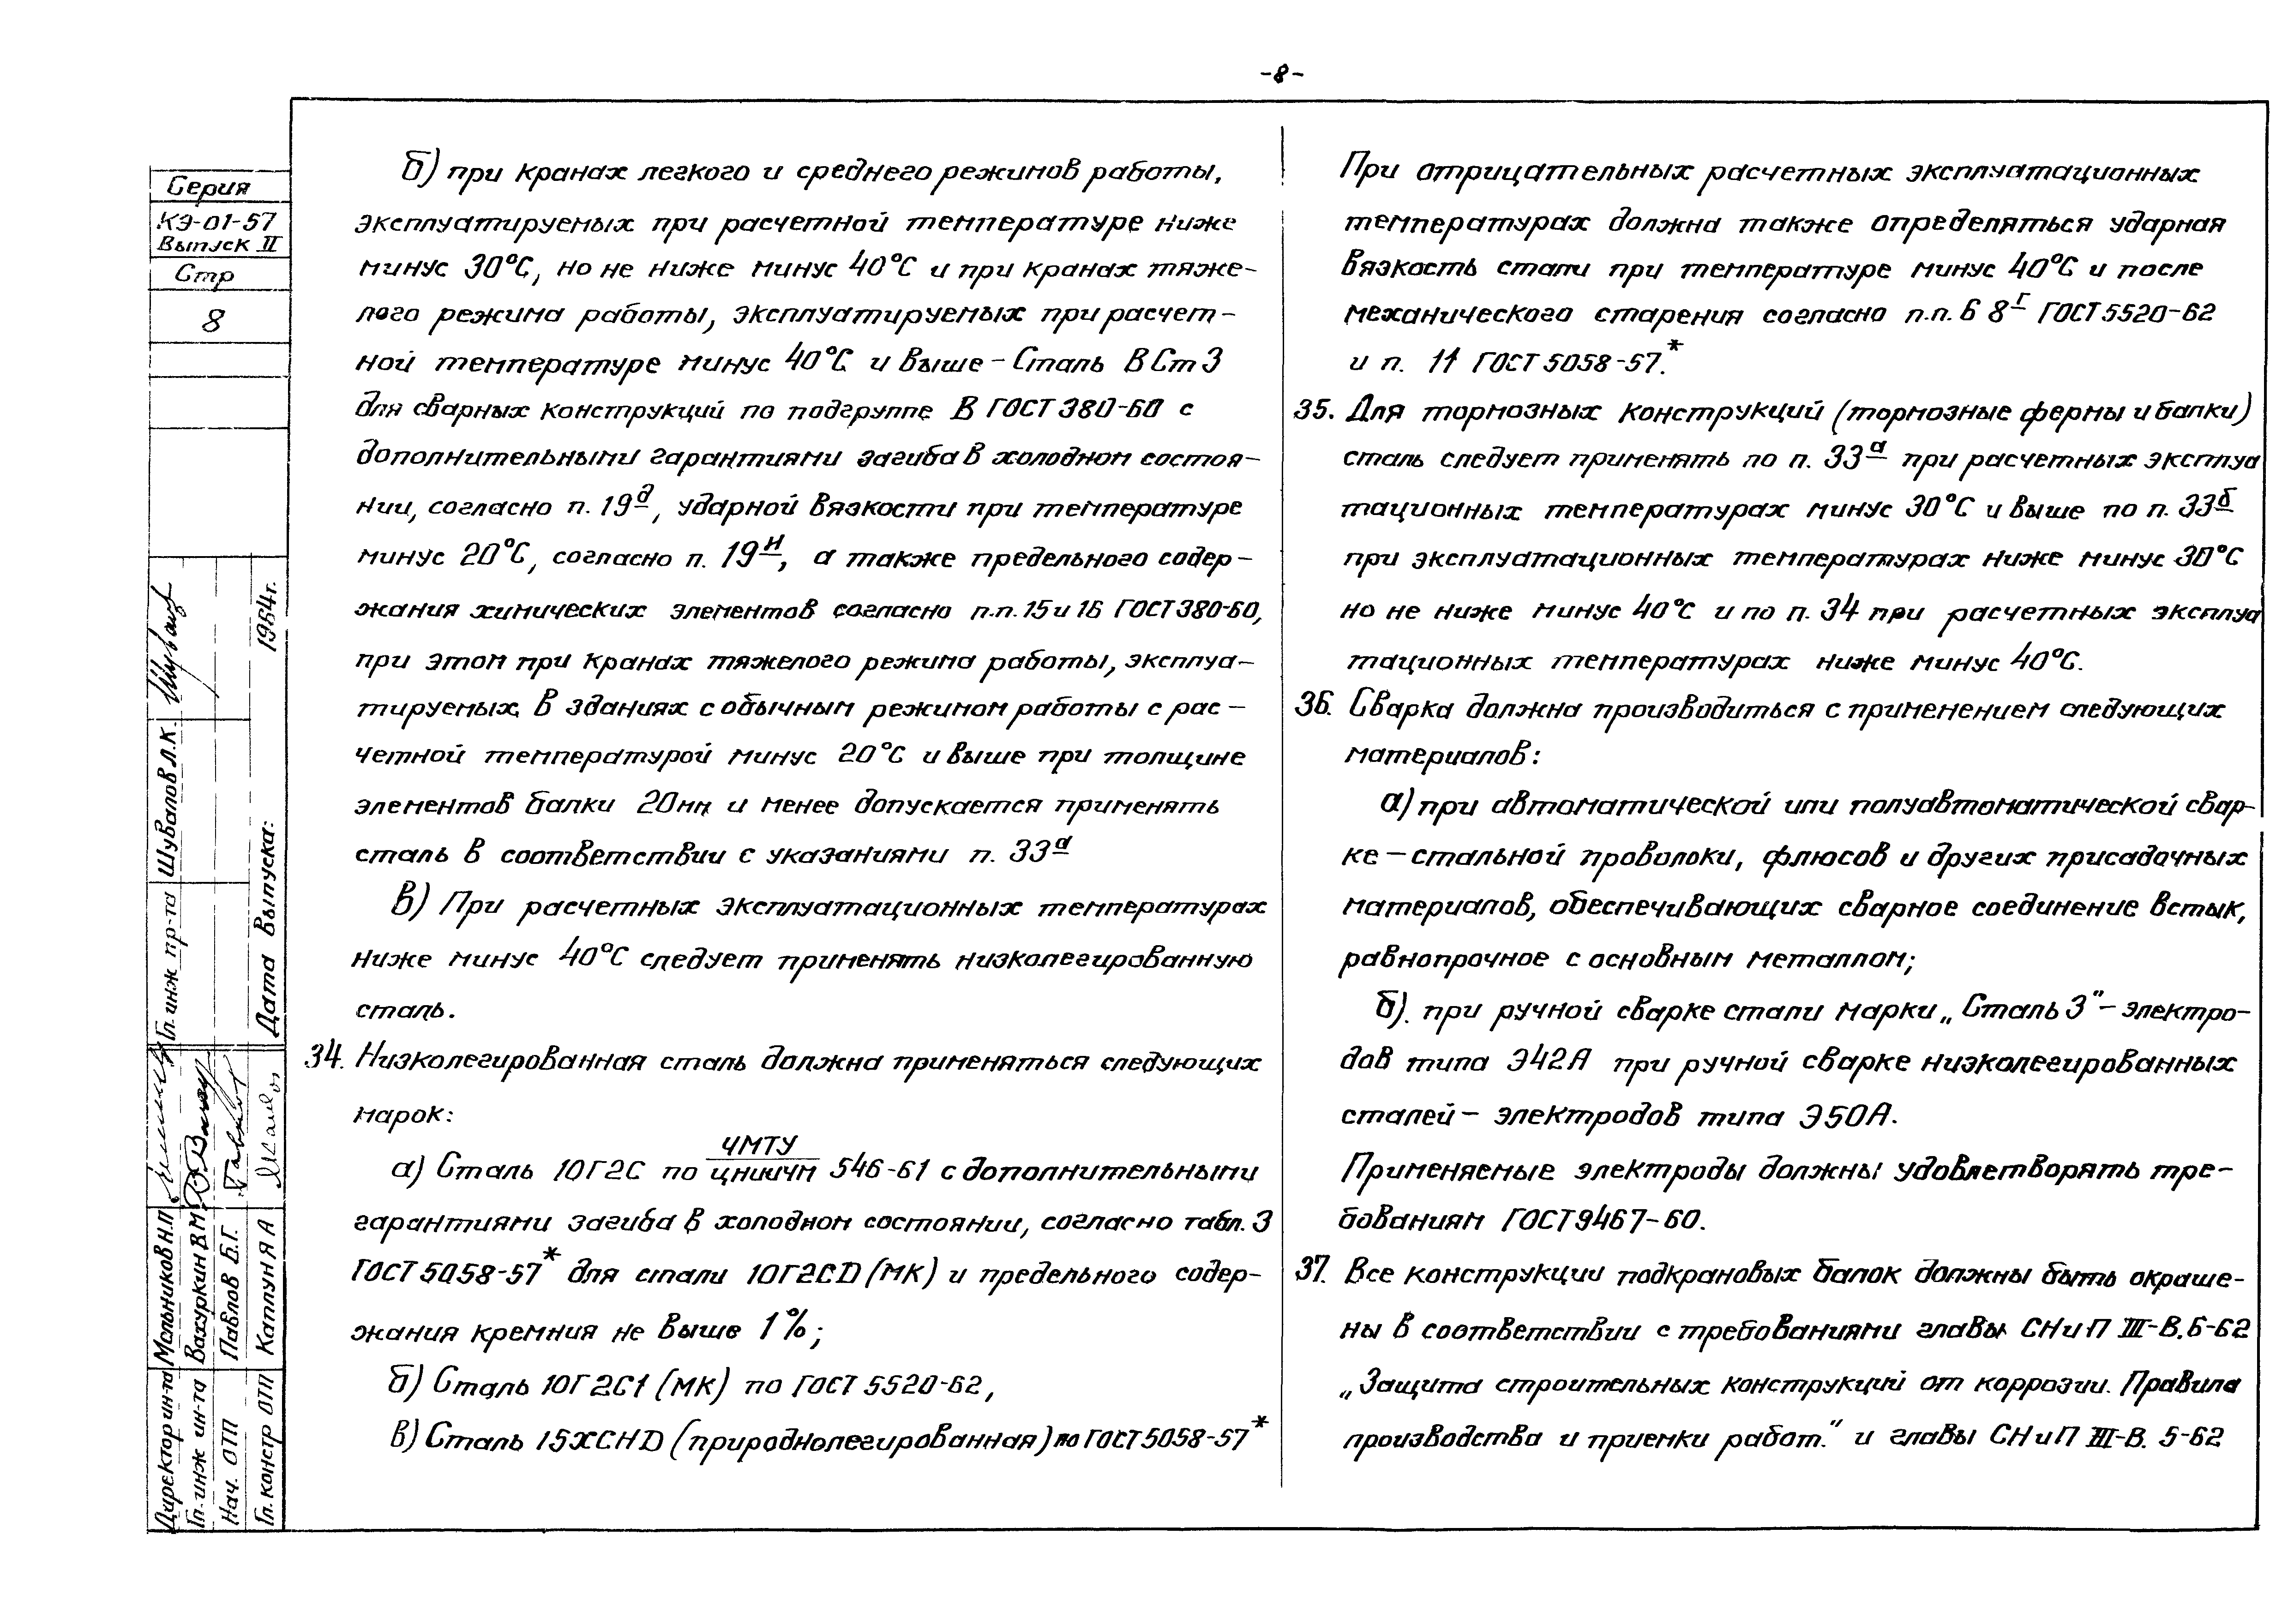 -8-
Серия
КЭ-01-57
Выпуск II
Стр
8
б) при кранах легкого и среднего режимов работы,
эксплуатируемых при расчетной температуре ниже
минус 30°С, но не ниже минус 40°С и при кранах тяже-
лого режима работы, эксплуатируемых при расчет-
ной температуре минус 40°С и выше - Сталь В Ст 3
для сварных конструкций по подгруппе В ГОСТ 380-60 с
дополнительными гарантиями загиба в холодном состоя-
нии, согласно п. 19д, ударной вязкости при температуре
минус 20°С, согласно п. 19и, а также предельного содер-
жания химических элементов согласно п.п. 15 и 16 ГОСТ 380-60,
при этом при кранах тяжелого режима работы, эксплуа-
тируемых в зданиях с обычным режимом работы с рас-
четной температурой минус 20°С и выше при толщине
элементов балки 20мм и менее допускается применять
сталь в соответствии с указаниями п. 33а
в) При расчетных эксплуатационных температурах
ниже минус 40°С следует применять низколегированную
сталь.
34. Низколегированная сталь должна применяться следующих
марок:
а) Сталь 10Г2С по ЧМТУ/ЦНИИЧМ 546-61 с дополнительными
гарантиями загиба в холодном состоянии, согласно табл. 3
ГОСТ 5058-57* для стали 10Г2СD (МК) и предельного содер-
жания кремния не выше 1%;
б) Сталь 10Г2С1 (МК) по ГОСТ 5520-62,
в) Сталь 15ХСНD (природнолегированная) по ГОСТ 5058-57*
При отрицательных расчетных эксплуатационных
температурах должна также определяться ударная
вязкость стали при температуре минус 40°С и после
механического старения согласно п.п. 6 8г ГОСТ 5520-62
и п. 11 ГОСТ 5058-57.*
35. Для тормозных конструкций (тормозные фермы и балки)
сталь следует применять по п. 33а при расчетных эксплуа
тационных температурах минус 30°С и выше по п. 33б
при эксплуатационных температурах ниже минус 30°С
но не ниже минус 40°С и по п. 34 при расчетных эксплуа
тационных температурах ниже минус 40°С.
36. Сварка должна производиться с применением следующих
материалов:
а) при автоматической или полуавтоматической свар-
ке - стальной проволоки, флюсов и других присадочных
материалов, обеспечивающих сварное соединение встык,
равнопрочное с основным металлом;
б). при ручной сварке стали марки „Сталь 3" - электро-
дов типа Э42А при ручной сварке низколегированных
сталей - электродов типа Э50А.
Применяемые электроды должны удовлетворять тре-
бованиям ГОСТ 9467-60.
37. Все конструкции подкрановых балок должны быть окраше-
ны в соответствии с требованиями главы СНиП III-В.6-62
„Защита строительных конструкций от коррозии. Правила
производства и приемки работ." и главы СНиП III-В. 5-62
Директор ин-та Мельников Н.П
Гл. инж ин-та Вахуркин В М
Нач. ОТП Павлов Б.Г.
Гл. констр ОТП Каплун Я А
Гл. инж пр-та Шувалов Л.К.
Дата выпуска: 1964г.